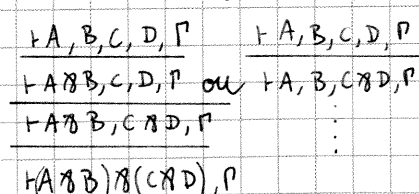 ⊢ A, B, C, D, Γ    ⊢ A, B, C, D, Γ
⊢ A⅋B, C, D, Γ ou ⊢ A, B, C⅋D, Γ
⊢ A⅋B, C⅋D, Γ    ⋮
⊢ (A⅋B)⅋(C⅋D), Γ